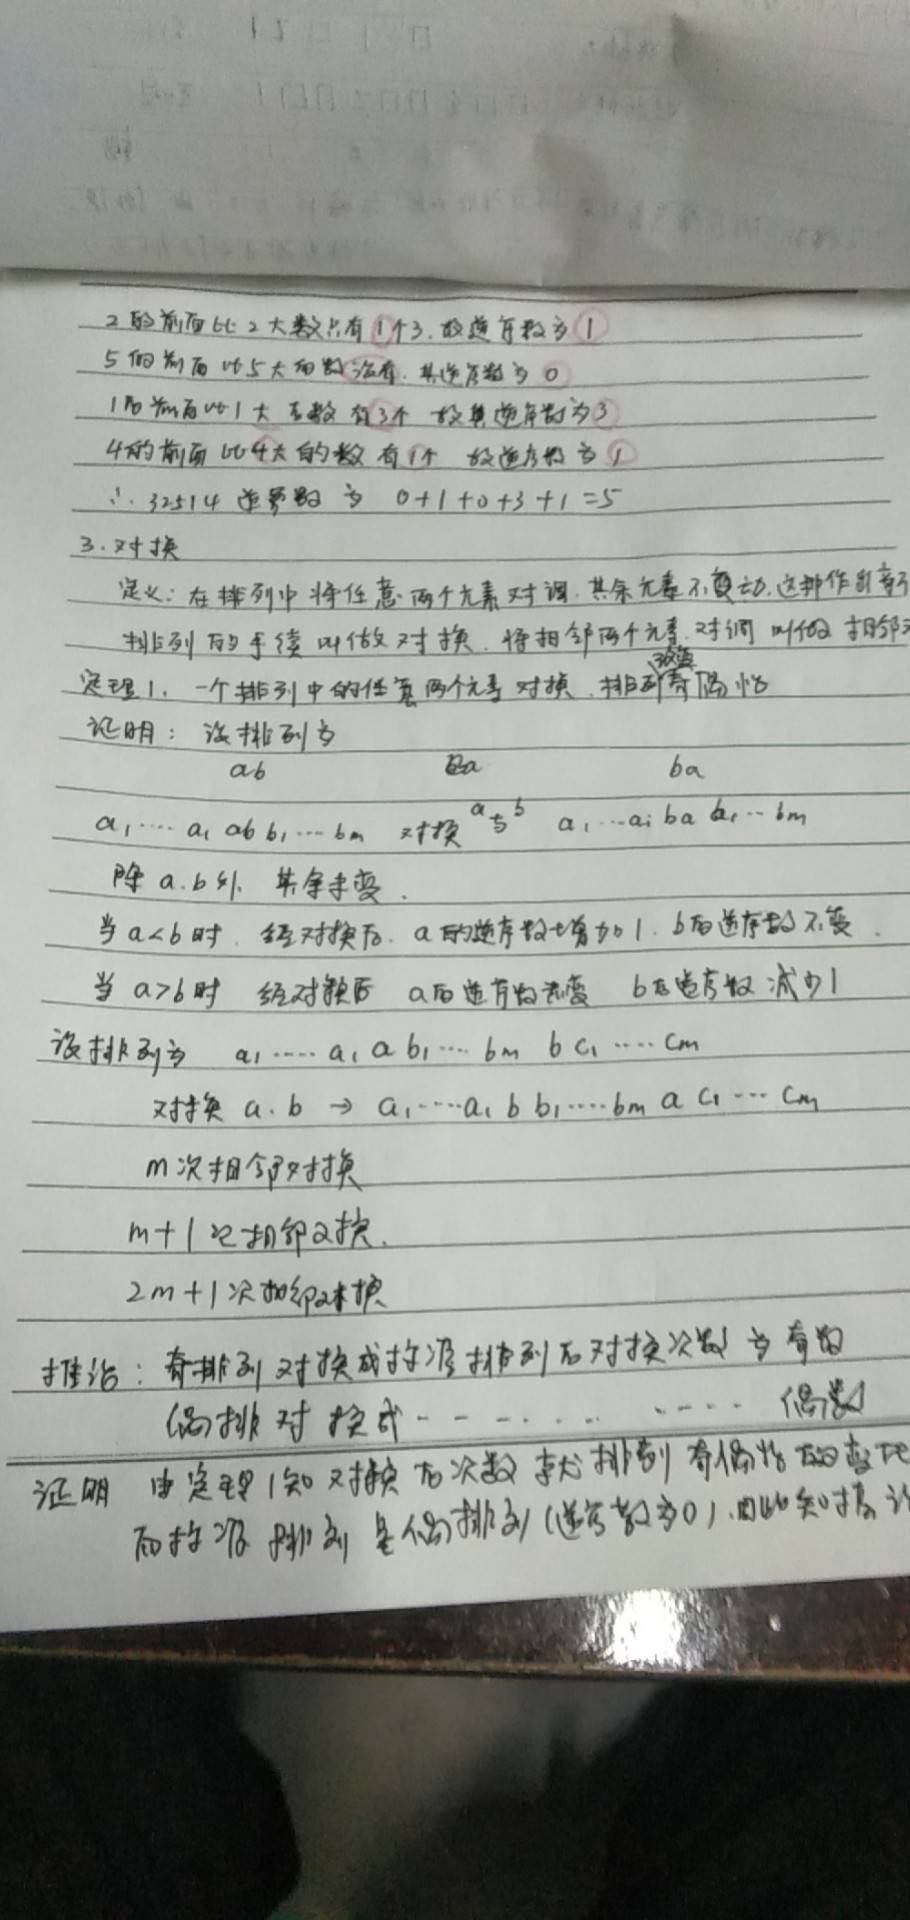 2的前面比2大数只有1个3.故逆序数为1
5的前面比5大的数没有.其逆序数为0
1的前面比1大的数有3个 故其逆序数为3
4的前面比4大的数有1个 故逆序数为1
∴ 32514 逆序数为 0+1+0+3+1=5
3.对换
定义:在排列中将任意两个元素对调.其余元素不变动.这种作出新
排列的手续叫做对换.将相邻两个元素对调 叫做 相邻对
定理1. 一个排列中的任意两个元素对换.排列改变奇偶性
证明: 设排列为
ab a ba
a₁……a₁ ab b₁…bm 对换a与b a₁…ai ba b₁…bm
除a.b外 其余未变.
当a<b时. 经对换后. a的逆序数增加1. b的逆序数不变.
当a>b时 经对换后 a的逆序数不变 b的逆序数减少1
设排列为 a₁……a₁ a b₁…bm b c₁……cm
对换 a.b → a₁……a₁ b b₁……bm a c₁…cm
m次相邻对换
m+1次相邻对换.
2m+1次相邻对换
推论: 奇排列对换成标准排列的对换次数为奇数
偶排对换成…… …… 偶数
证明 由定理1知对换的次数就排列奇偶性的变化
而标准排列是偶排列(逆序数为0).因此知推论